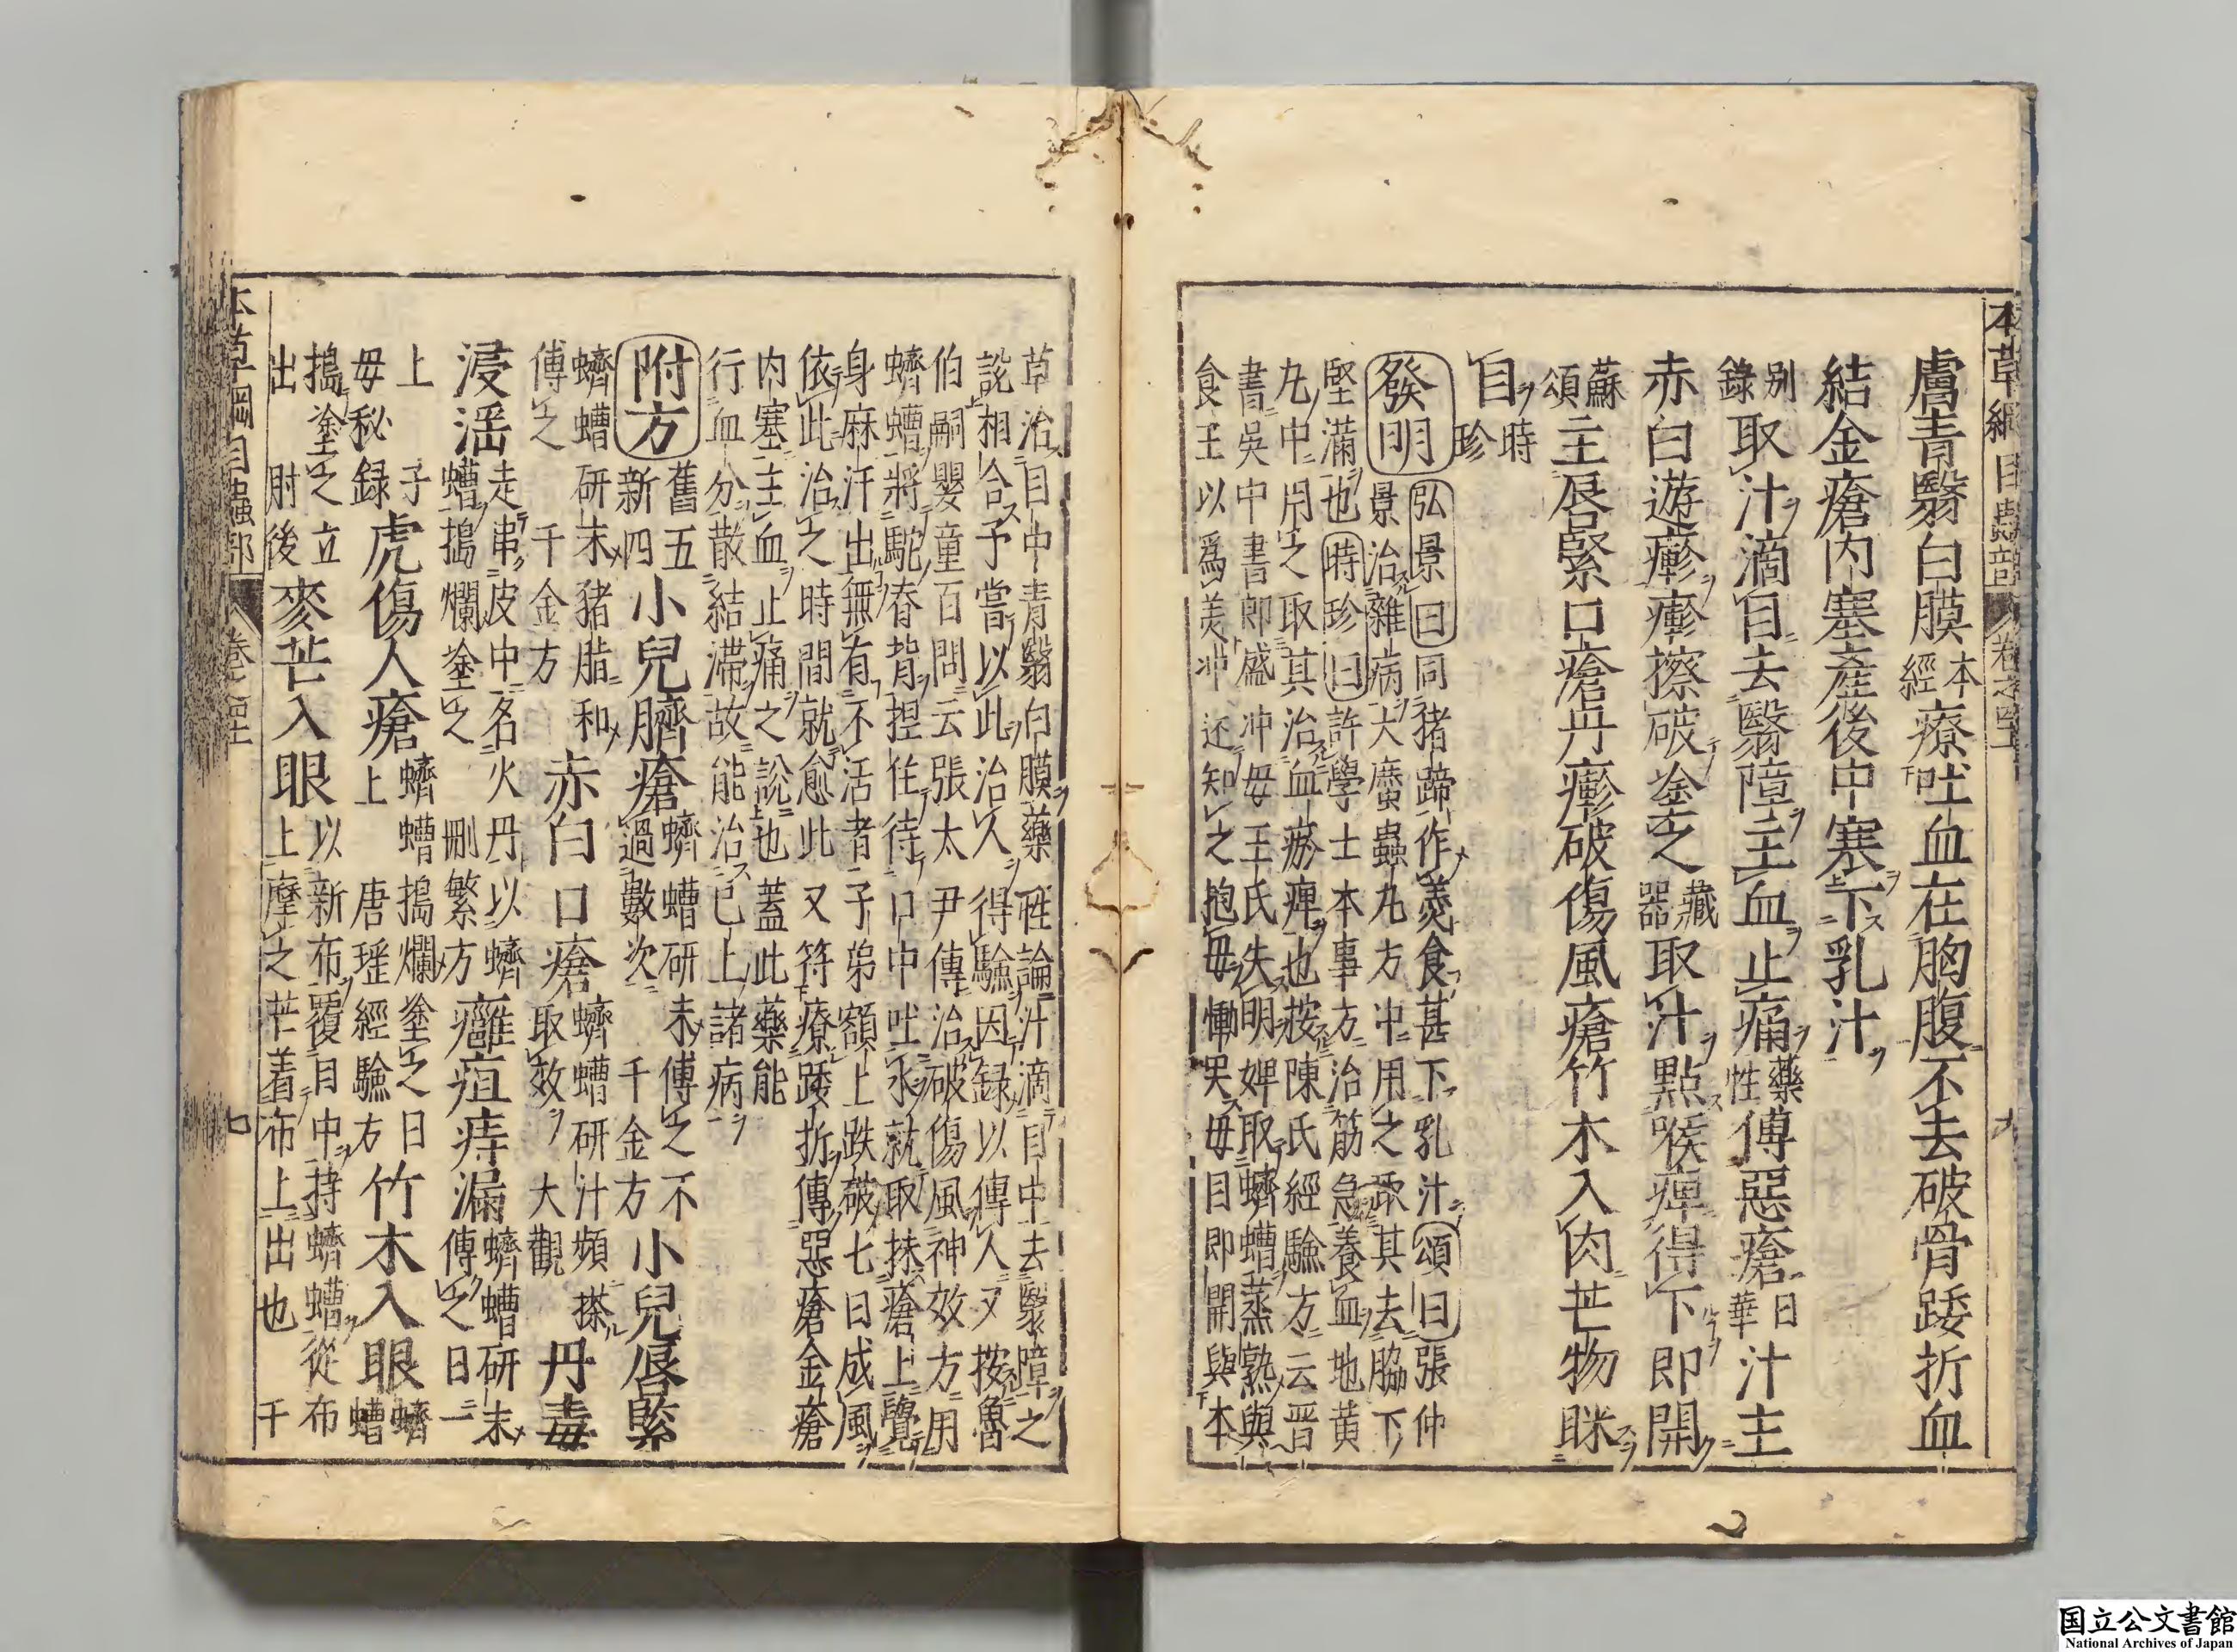 本草綱目蟲部 卷之四十一 九
膚青翳白膜本經療吐血在胸腹不去破骨踒折血
結金瘡内塞產後中塞下乳汁
别錄取汁滴目去翳障主血止痛藥性傅惡瘡日華汁主
赤白遊瘮瘮擦破塗之藏器取汁點喉痺得下即開
蘇頌主唇緊口瘡丹瘮破傷風瘡竹木入肉芒物眯
目時珍
發明弘景曰同猪蹄作羮食甚下乳汁頌曰張仲
景治雜病大䗪蟲丸方中用之取其去脇下
堅滿也時珍曰許學士本事方治筋急養血地黄
丸中用之取其治血瘀痺也按陳氏經驗方云晋
書吳中書郎盛冲母王氏失明婢取蠐螬蒸熟與
食王以爲美冲还知之抱母慟哭母目即開與本
草治目中青翳白膜藥性論汁滴目中去翳障之
說相合予嘗以此治人得驗因録以傳人又按魯
伯嗣嬰童百問云張太尹傳治破傷風神效方用
蠐螬將駝脊背捏住待口中吐水就取抹瘡上覺
身麻汗出無有不活者子弟額上跌破七日成風
依此治之時間就愈此又符療踒折傅惡瘡金瘡
内塞主血止痛之說也蓋此藥能
行血分散結滯故能治已上諸病
附方舊五新四小兒臍瘡蠐螬研末傅之不過數次千金方小兒唇緊
蠐螬研末猪脂和傅之千金方赤白口瘡蠐螬研汁頻搽取效大觀丹毒
浸淫走串皮中名火丹以蠐螬搗爛塗之刪繁方癰疽痔漏蠐螬研末傅之日一
上子母秘録虎傷人瘡蠐螬搗爛塗之日上唐瑶經驗方竹木入眼蠐螬
搗塗之立出肘後麥芒入眼以新布覆目中持蠐螬從布上摩之芒着布上出也千
本草綱目蟲部 卷之四十一
国立公文書館
National Archives of Japan